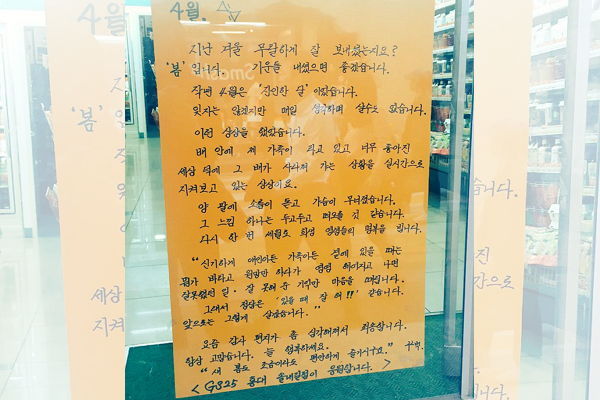 4월.
지난 겨울 무탈하게 잘 보내셨는지요?
'봄'입니다. 기운들 내셨으면 좋겠습니다.
작년 4월은 '잔인한 달'이었습니다.
잊지는 않겠지만 매일 생각하며 살수도 없습니다.
이런 상상을 했었습니다.
배 안에 제 가족이 타고 있고 너무 좋아진
세상 덕에 그 배가 사라져 가는 상황을 실시간으로
지켜보고 있는 상상이요.
양 팔에 소름이 돋고 가슴이 무너졌습니다.
그 느낌 하나는 두고두고 떠오를 것 같습니다.
다시 한 번 세월호 희생 영령들의 명복을 빕니다.
"신기하게 애인이든 가족이든 곁에 있을 때는
뭔가 바라고 원망만 하다가 영영 헤어지고 나면
잘못했던 일·잘 못해 준 기억만 마음을 때립니다.
그래서 정답은 '있을 때 잘 해!!' 같습니다.
앞으로는 그렇게 살겠습니다."
요즘 감사 편지가 좀 심각해져서 죄송합니다.
항상 고맙습니다. 늘 행복하세요.
"새 봄도 조금이라도 편안하게 즐기시구요."
< GS25 홍대 응원합니다. >